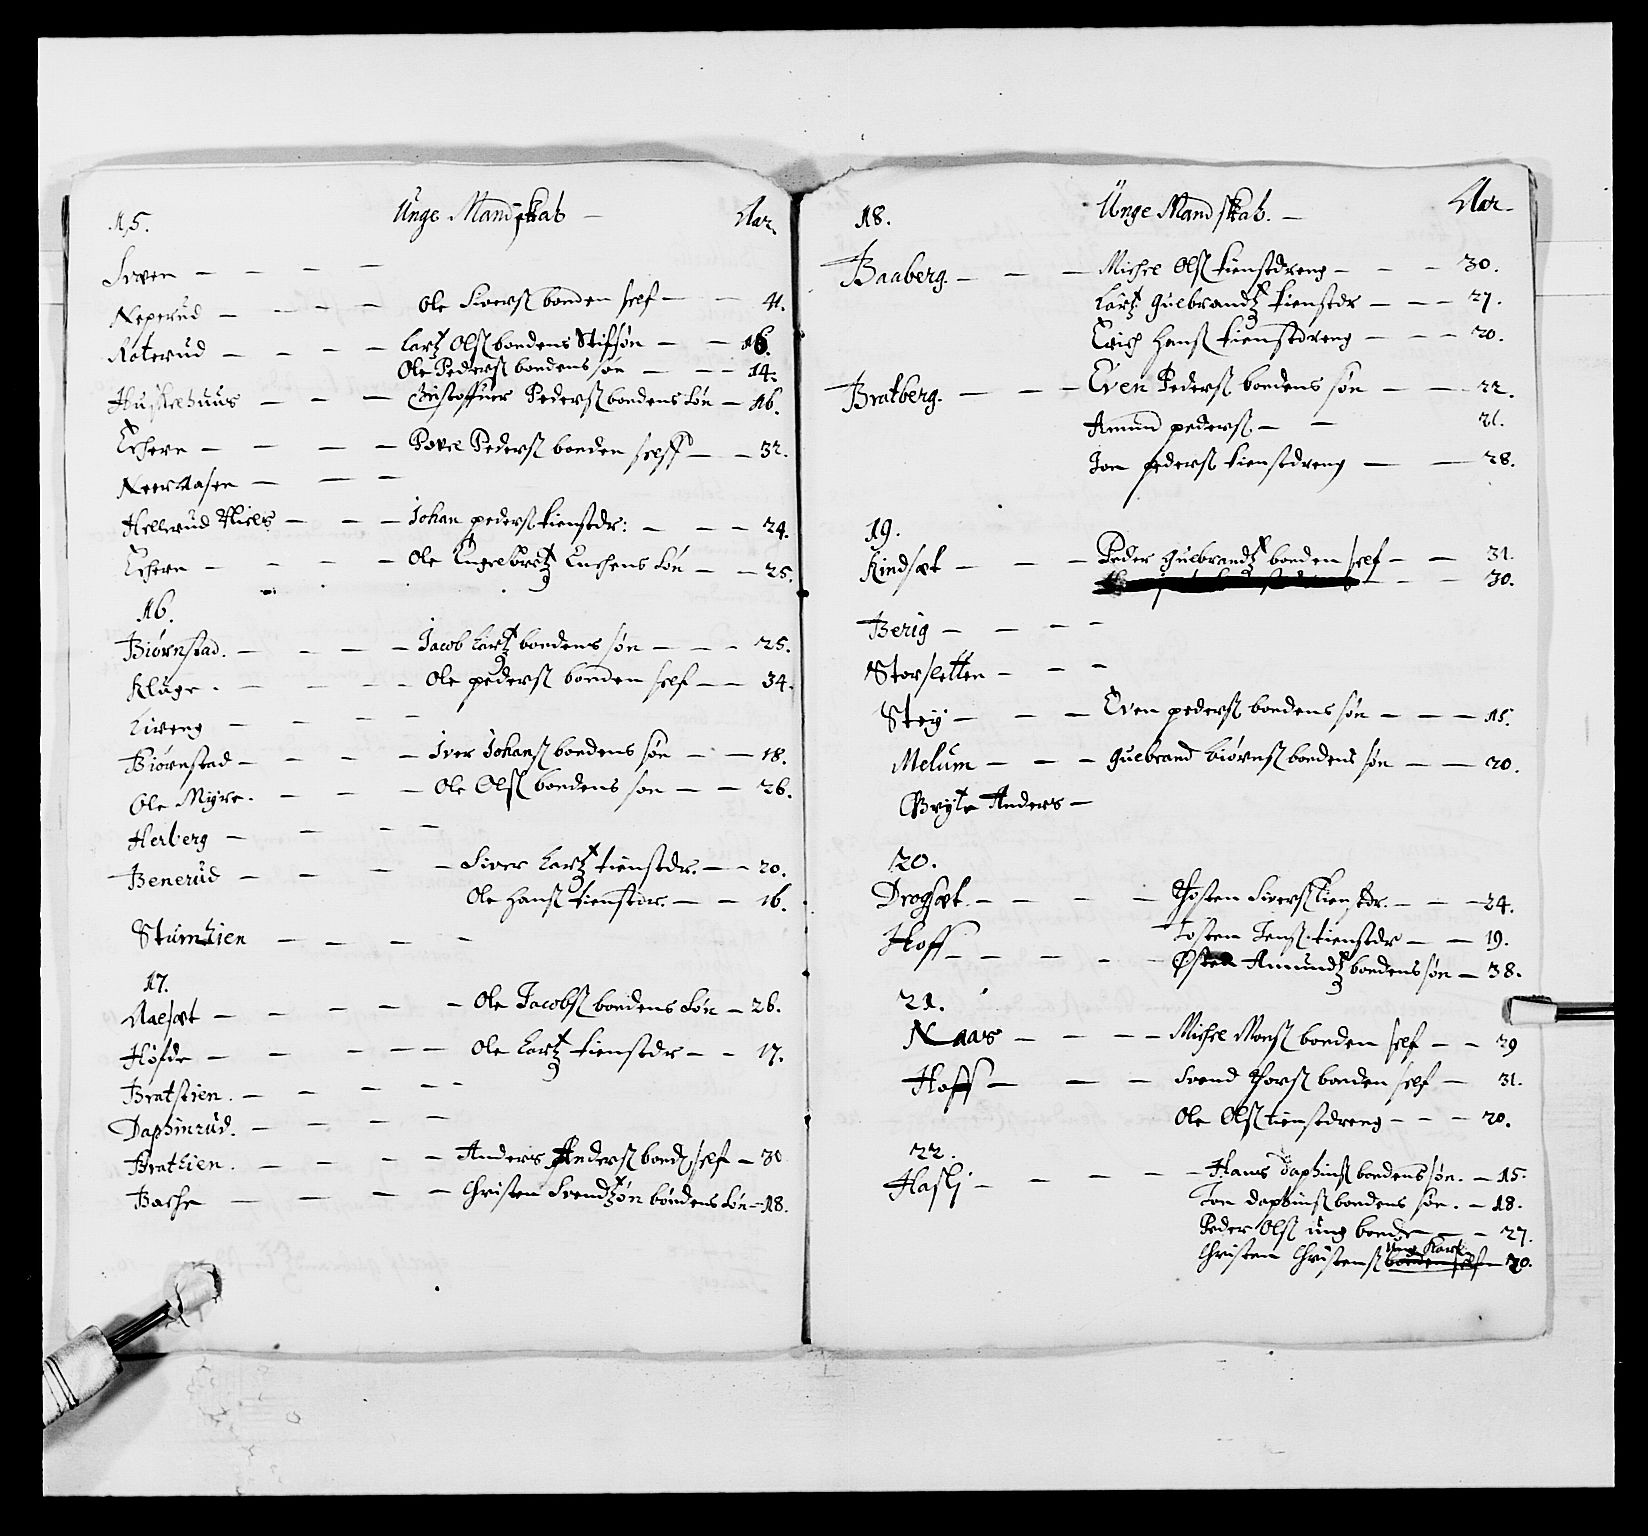 15. Unge Mandskab — Aar.
Sven — — — —
Neperud — — — — Ole Sivers̃ bonden self — — 41.
Roterud — — — — Lartz Ols̃ bondens Stifsøn — — 16.
Ole Peders̃ bondens søn — — — 14.
Huskehuus — — — Christoffuer Peders̃ bondens Søn — 16.
Echern — — — — Povel Peders̃ bonden selff — — 32.
Neeraasen — — —
Hellerud Niels — — — Johan peders̃ tienstdr: — — — 24.
Echern — — — — Ole Engelbretz Enchens Søn — — 25.
16.
Biørnstad. — — — — Jacob Lartz bondens søn — — — 25.
Kluge. — — — Ole peders̃ bonden self — — 34.
Liveng — — — —
Biørnstad — — — — Iver Johans̃ bondens søn — — 18.
Ole Myre. — — — Ole Ols̃ bondens søn — — 26.
Herberg — — — —
Benerud — — — — Siver Lartz tienstdr. — — 20.
Ole Hans̃ tienstdr. — — 16.
Stumlien — — — —
17.
Aalsæt — — — — — Ole Jacobs̃ bondens Søn — 26.
Hofde — — — — — Ole Lartz tienstdr — — 17.
Bratlien. — — — — —
Daphinrud. — — — —
Brathien. — — — — Anders Anders̃ bond self — 30
Bache — — — — Christen Svendtzøn bondens Søn — 18.
18. Unge Mandskab. — Aar.
Baaberg. — — — Michel Ols̃ tienstdreng — — — 30.
Lartz Guebrandtz tienstdr — — — 27.
Erich Hans̃ tienstdreng — — — 20.
Bratberg. — — — Even Peders̃ bondens søn — — — 22.
Amund peders̃. — — 21.
Jon peders̃ tienstdreng — — 28.
19.
Kindsæt — — — Peder guebrandtz bonden self — — 31.
— — — 30.
Berig — — — —
Storsletten — — —
Stey — — — Even peders̃ bondens søn — — — 15.
Melum — — — guebrand biørns̃ bondens søn — — 20.
Bryte Anders —
20.
Drogsæt. — — — — Tosten Sivers̃ tienstdr. — — — 24.
Hoff — — — — — Tosten Jens̃: tienstdr — — 19.
Østen Amundtz bondens søn — 38.
21.
Naas — — — — Michel Mons̃ bonden self — — 29
Hoff — — — Svend Thors̃ bonden self — 31.
Ole Ols̃ tienstdreng — — — 20.
22.
Haslj — — — — — Hans Daphins̃ bondens søn. — 15.
Jon daphins̃ bondens søn. — 18.
Peder Ols̃ ung bonde — — 27.
ung Karl
Christen Christens̃ bonden self — 20.